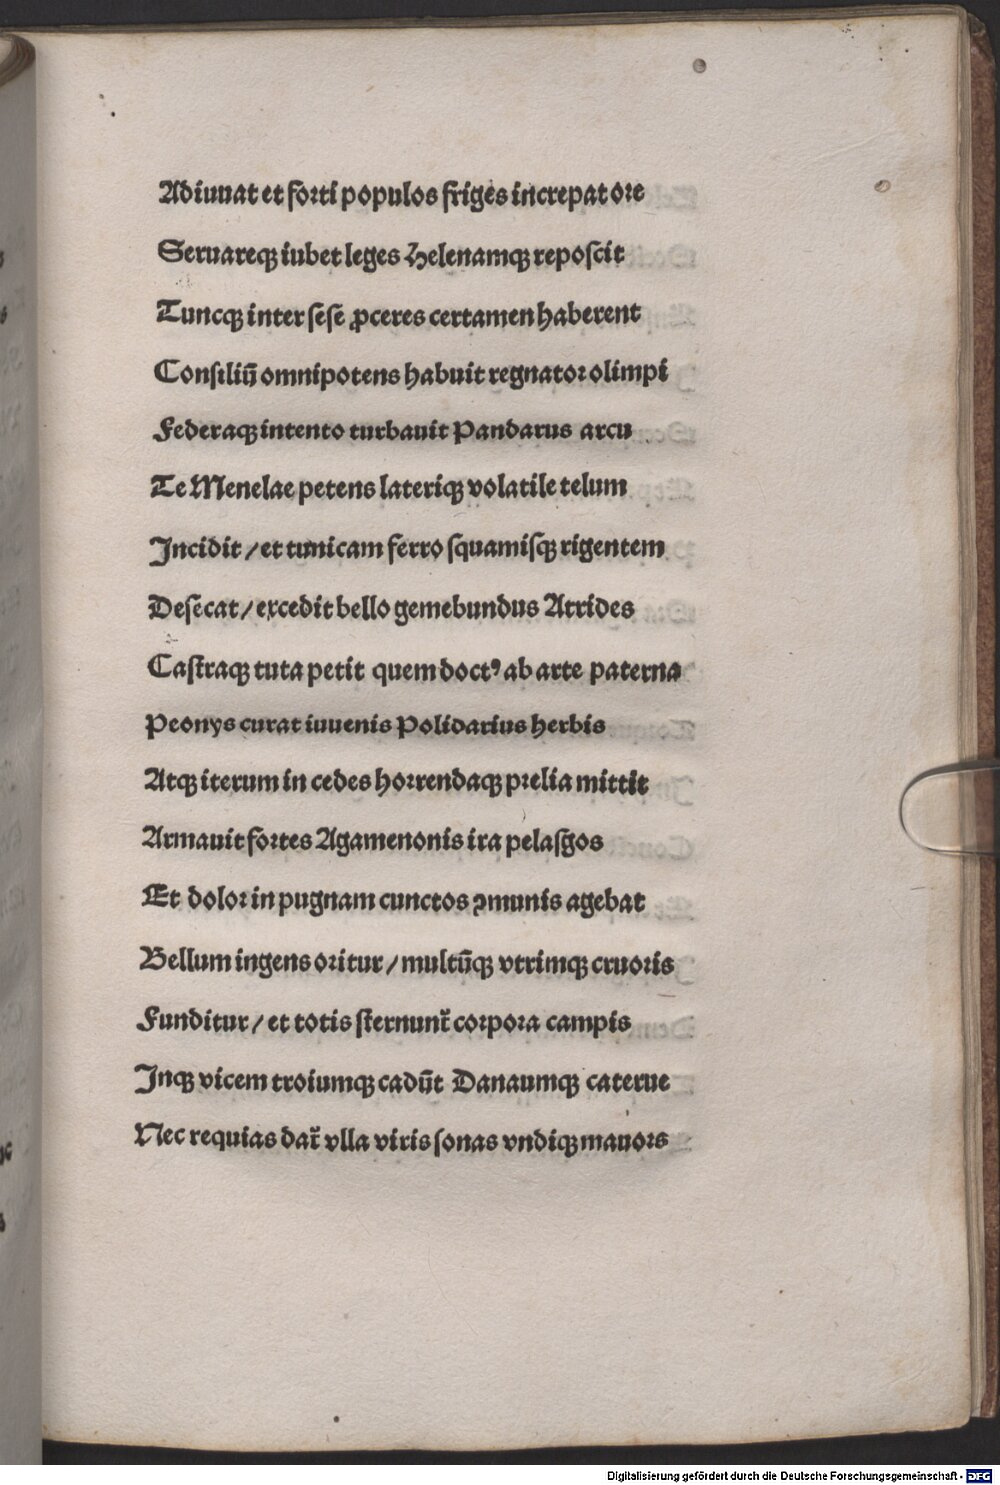 Adiuuat et forti populos friges increpat ore
Seruareqꝫ iubet leges Helenamqꝫ reposcit
Tuncqꝫ inter sese ꝓceres certamen haberent
Consiliū omnipotens habuit regnator olimpi
Federaqꝫ intento turbauit Pandarus arcu
Te Menelae petens lateriqꝫ volatile telum
Incidit / et tunicam ferro squamisqꝫ rigentem
Desecat / excedit bello gemebundus Atrides
Castraqꝫ tuta petit quem doctꝰ ab arte paterna
Peonys curat iuuenis Polidarius herbis
Atqꝫ iterum in cedes horrendaqꝫ prelia mittit
Armauit fortes Agamenonis ira pelasgos
Et dolor in pugnam cunctos ꝯmunis agebat
Bellum ingens oritur / multūqꝫ vtrimqꝫ cruoris
Funditur / et totis sternunt᷑ corpora campis
Inqꝫ vicem troiumqꝫ cadūt Danaumqꝫ caterue
Nec requias dat᷑ vlla viris sonas vndiqꝫ mauors
Digitalisierung gefördert durch die Deutsche Forschungsgemeinschaft - DFG